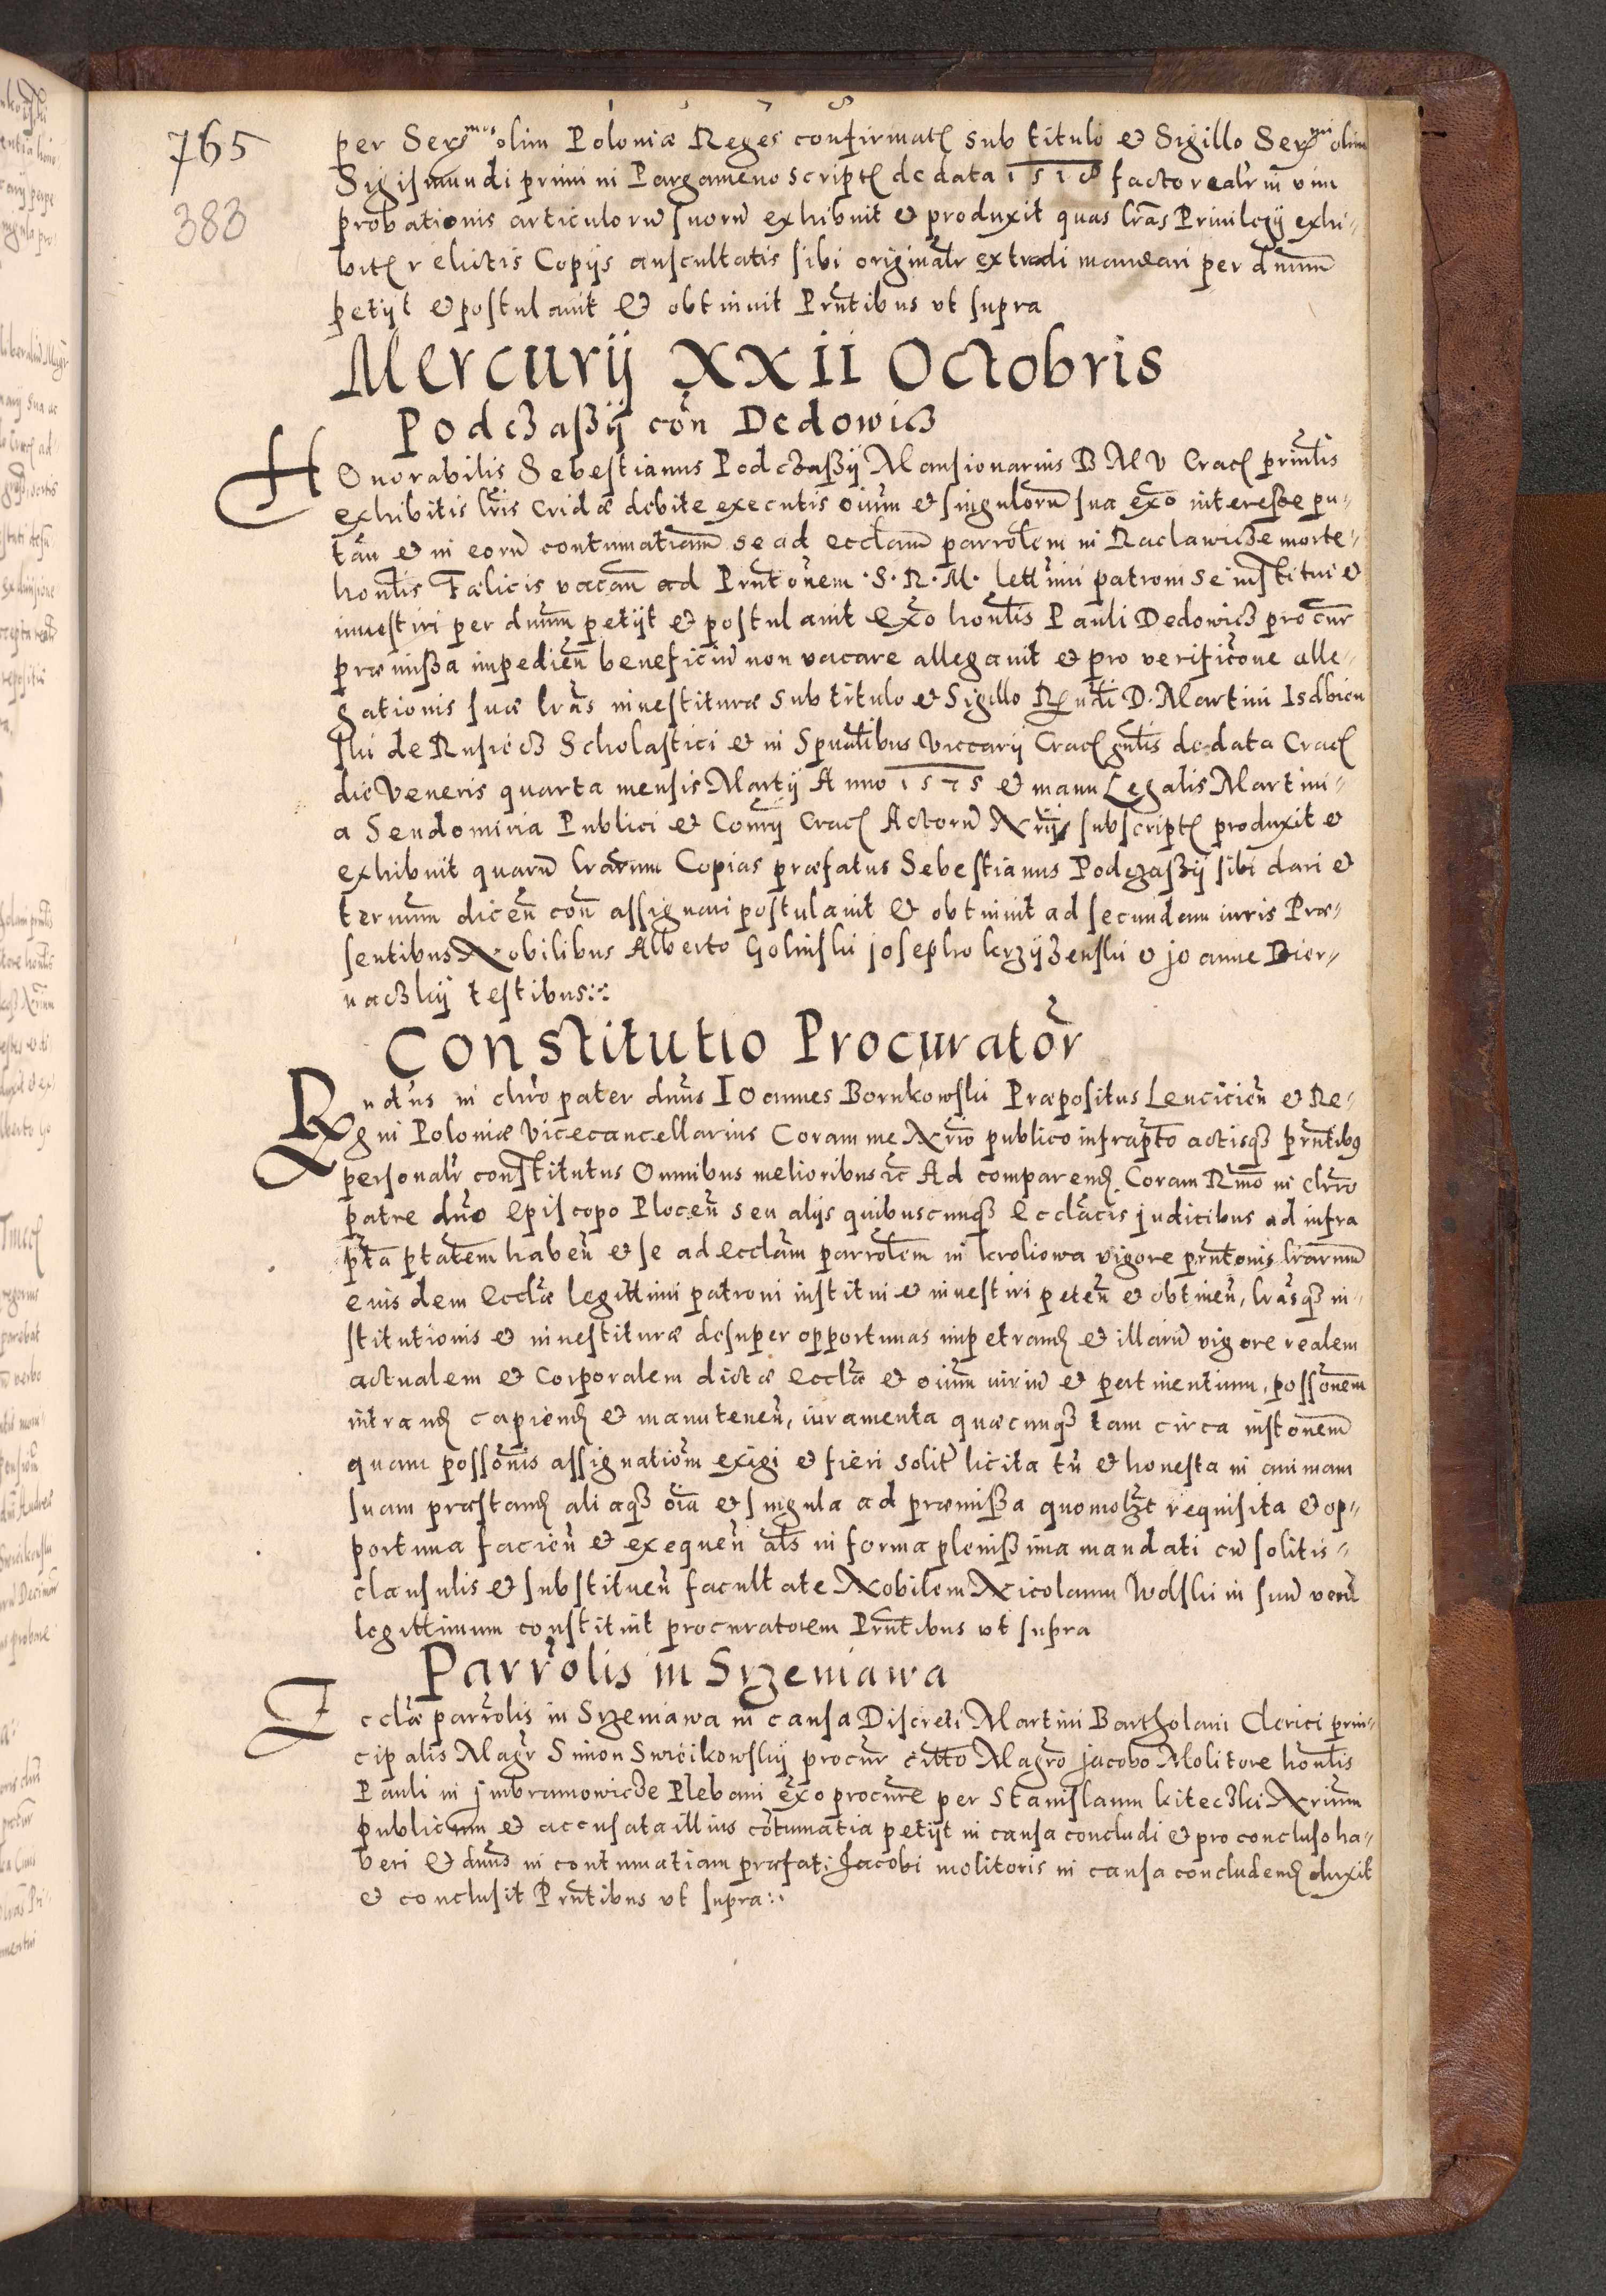 765
383
per Serᵐᵒˢ olim Poloniæ Reges confirmat sub titulo et Sigillo Serᵐⁱ olim
Sigismundi primi in Pargameno script de data 1518 facto realr in vim
probationis articulorū suorū exhibuit et produxit quas lrãs Priuilegij exhi„
bit relictis Copijs auscultatis sibi originalr extradi mandari per dnum
petijt et postulauit Et obtinuit Prntibus vt supra
Mercurij XXII Octobris
Podczaßij con̄ Dedowicz
HOnorabilis Sebestianus Podczaßij Mansionarius B M V Crac prinlis
exhibitis lris Cridæ debite executis oium et singulorū sua exo interesse pu„
tan̄ et in eorū contumatiam se ad ecclam parrolem in Raclawicze morte„
honlis Fælicis vacan̄ ad Prntonem S. R. M. lettimi patroni se institui et
inuestiri per dnum petijt et postulauit Exo honlis Pauli Dedowicz procur
præmißa impedien̄ beneficiū non vacare allegauit et pro verificone alle„
gationis suæ lrãs inuestituræ sub titulo et Sigillo Rndi D. Martini Isdbien
ski de Rusiecz Scholastici et in Spualibus Viccarij Crac gnlis de data Crac
die Veneris quarta mensis Martij Anno 1575 et manu Legalis Martini„
a Sendomiria Publici et Consrij Crac Actorū Nrij subscript produxit et
exhibuit quarū lrarum Copias præfatus Sebestianus Podczaßij sibi dari et
terminum dicen̄ con̄ assignari postulauit Et obtinuit ad secundam iuris Præ„
sentibus Nobilibus Alberto Golinski josepho krzijzenski et joanne Bier„
naczkij testibus
Constitutio Procurator
Rndus in chro pater dnus IOannes Bornkowski Præpositus Lencicien̄ et Re„
gni Poloniæ Vicecancellarius Coram me Nrio publico infrapto actisq3 prntibus
personalr constitutus Omnibus melioribus etc Ad comparend Coram Rmo in chro
patre dno episcopo Plocen̄ seu alijs quibuscunq3 Ecclacis judicibus ad infra
pta ptatem haben̄ et se ad ecclam parrolem in kroliowa vigore prntonis lrarum
eiusdem Ecclæ legittimi patroni institui et inuestiri peten̄ et obtinen̄, lrãsq3 in„
stitutionis et inuestituræ desuper opportunas impetrand et illarū vigore realem
actualem et Corporalem dictæ Ecclæ et oium iuriū et pertinentium, possonem
intrand capiend et manutenen̄, iuramenta quæcunq3 tam circa instonem
quam possonis assignationem exigi et fieri solit licita tn̄ et honesta in animam
suam præstand aliaq3 oia et singula ad præmißa quomolzt requisita et op„
portuna facien̄ et exequen̄ als in forma plenißima mandati cū solitis„
clausulis et substituen̄ facultate Nobilem Nicolaum Wolski in suū verū
legittimum constituit procuratorem Prntibus vt supra
Parrolis in Srzeniawa
Ecclæ parrolis in Srzeniawa in causa Discreti Martini Bartholani Clerici prin„
cipalis Magr Simon Swicikowskij procur citto Magro jacobo Molitore honlis
Pauli in jmbramowicze Plebani exo procure per Stanislaum kiteczki Nrium
publicum et accusata illius cōtumatia petijt in causa concludi et pro concluso ha„
beri Et dnus in contumatiam præfati Jacobi molitoris in causa concludend duxit
et conclusit Prntibus vt supra